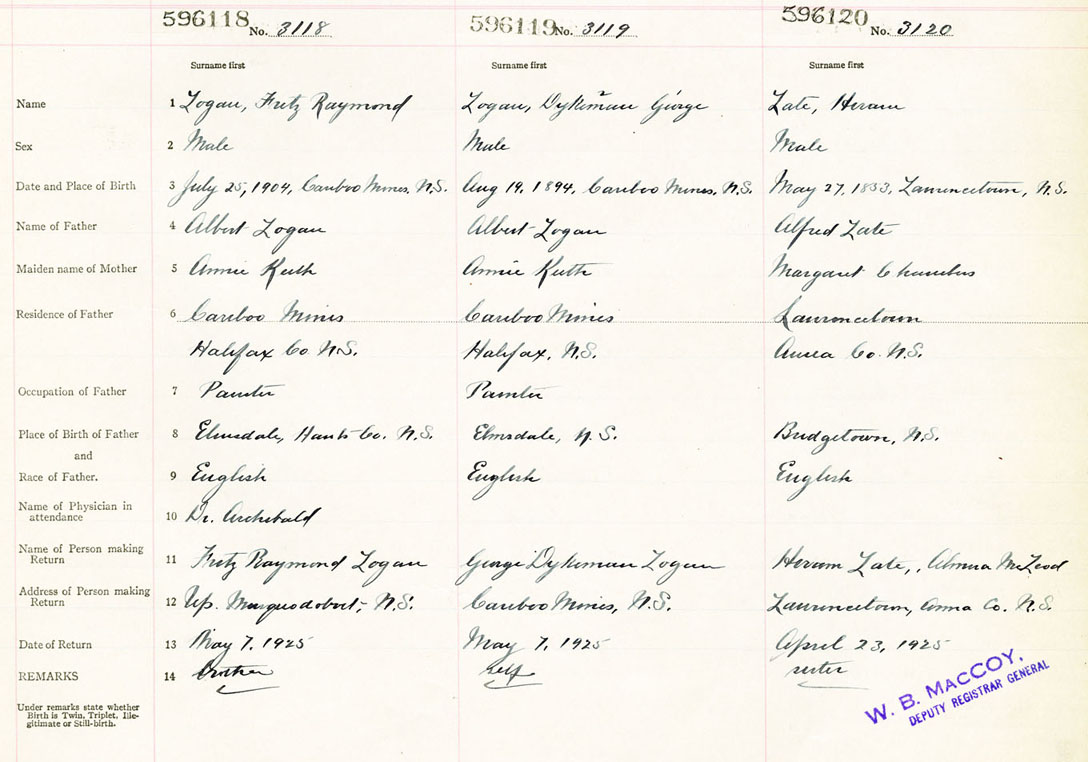 596118 No. 3118 596119 No. 3119 596120 No. 3120
Surname first Surname first Surname first
Name 1 Logan, Fritz Raymond Logan, Dykeman George Late, Hiram
Sex 2 Male Male Male
Date and Place of Birth 3 July 25, 1904, Cariboo Mines, N.S. Aug 19, 1894, Cariboo Mines, N.S. May 27, 1853, Lawrencetown, N.S.
Name of Father 4 Albert Logan Albert Logan Alfred Late
Maiden name of Mother 5 Annie Keith Annie Keith Margaret Chambers
Residence of Father 6 Cariboo Mines Cariboo Mines Lawrencetown
Halifax Co N.S. Halifax, N.S. Co. N.S.
Occupation of Father 7 Painter Painter
Place of Birth of Father 8 Elmsdale, Hants Co. N.S. Elmsdale, N.S. Bridgetown, N.S.
and
Race of Father. 9 English English English
Name of Physician in
attendance 10 Dr. Archibald
Name of Person making
Return 11 Fritz Raymond Logan George Dykeman Logan Hiram Late, Almira McLeod
Address of Person making
Return 12 Up. Musquodoboit, N.S. Cariboo Mines, N.S. Lawrencetown, Anna Co. N.S.
Date of Return 13 May 7, 1925 May 7, 1925 April 23, 1925
REMARKS 14 Brother Self sister
Under remarks state whether
Birth is Twin, Triplet, Ille-
gitimate or Still-birth.
W. B. MACCOY,
DEPUTY REGISTRAR GENERAL